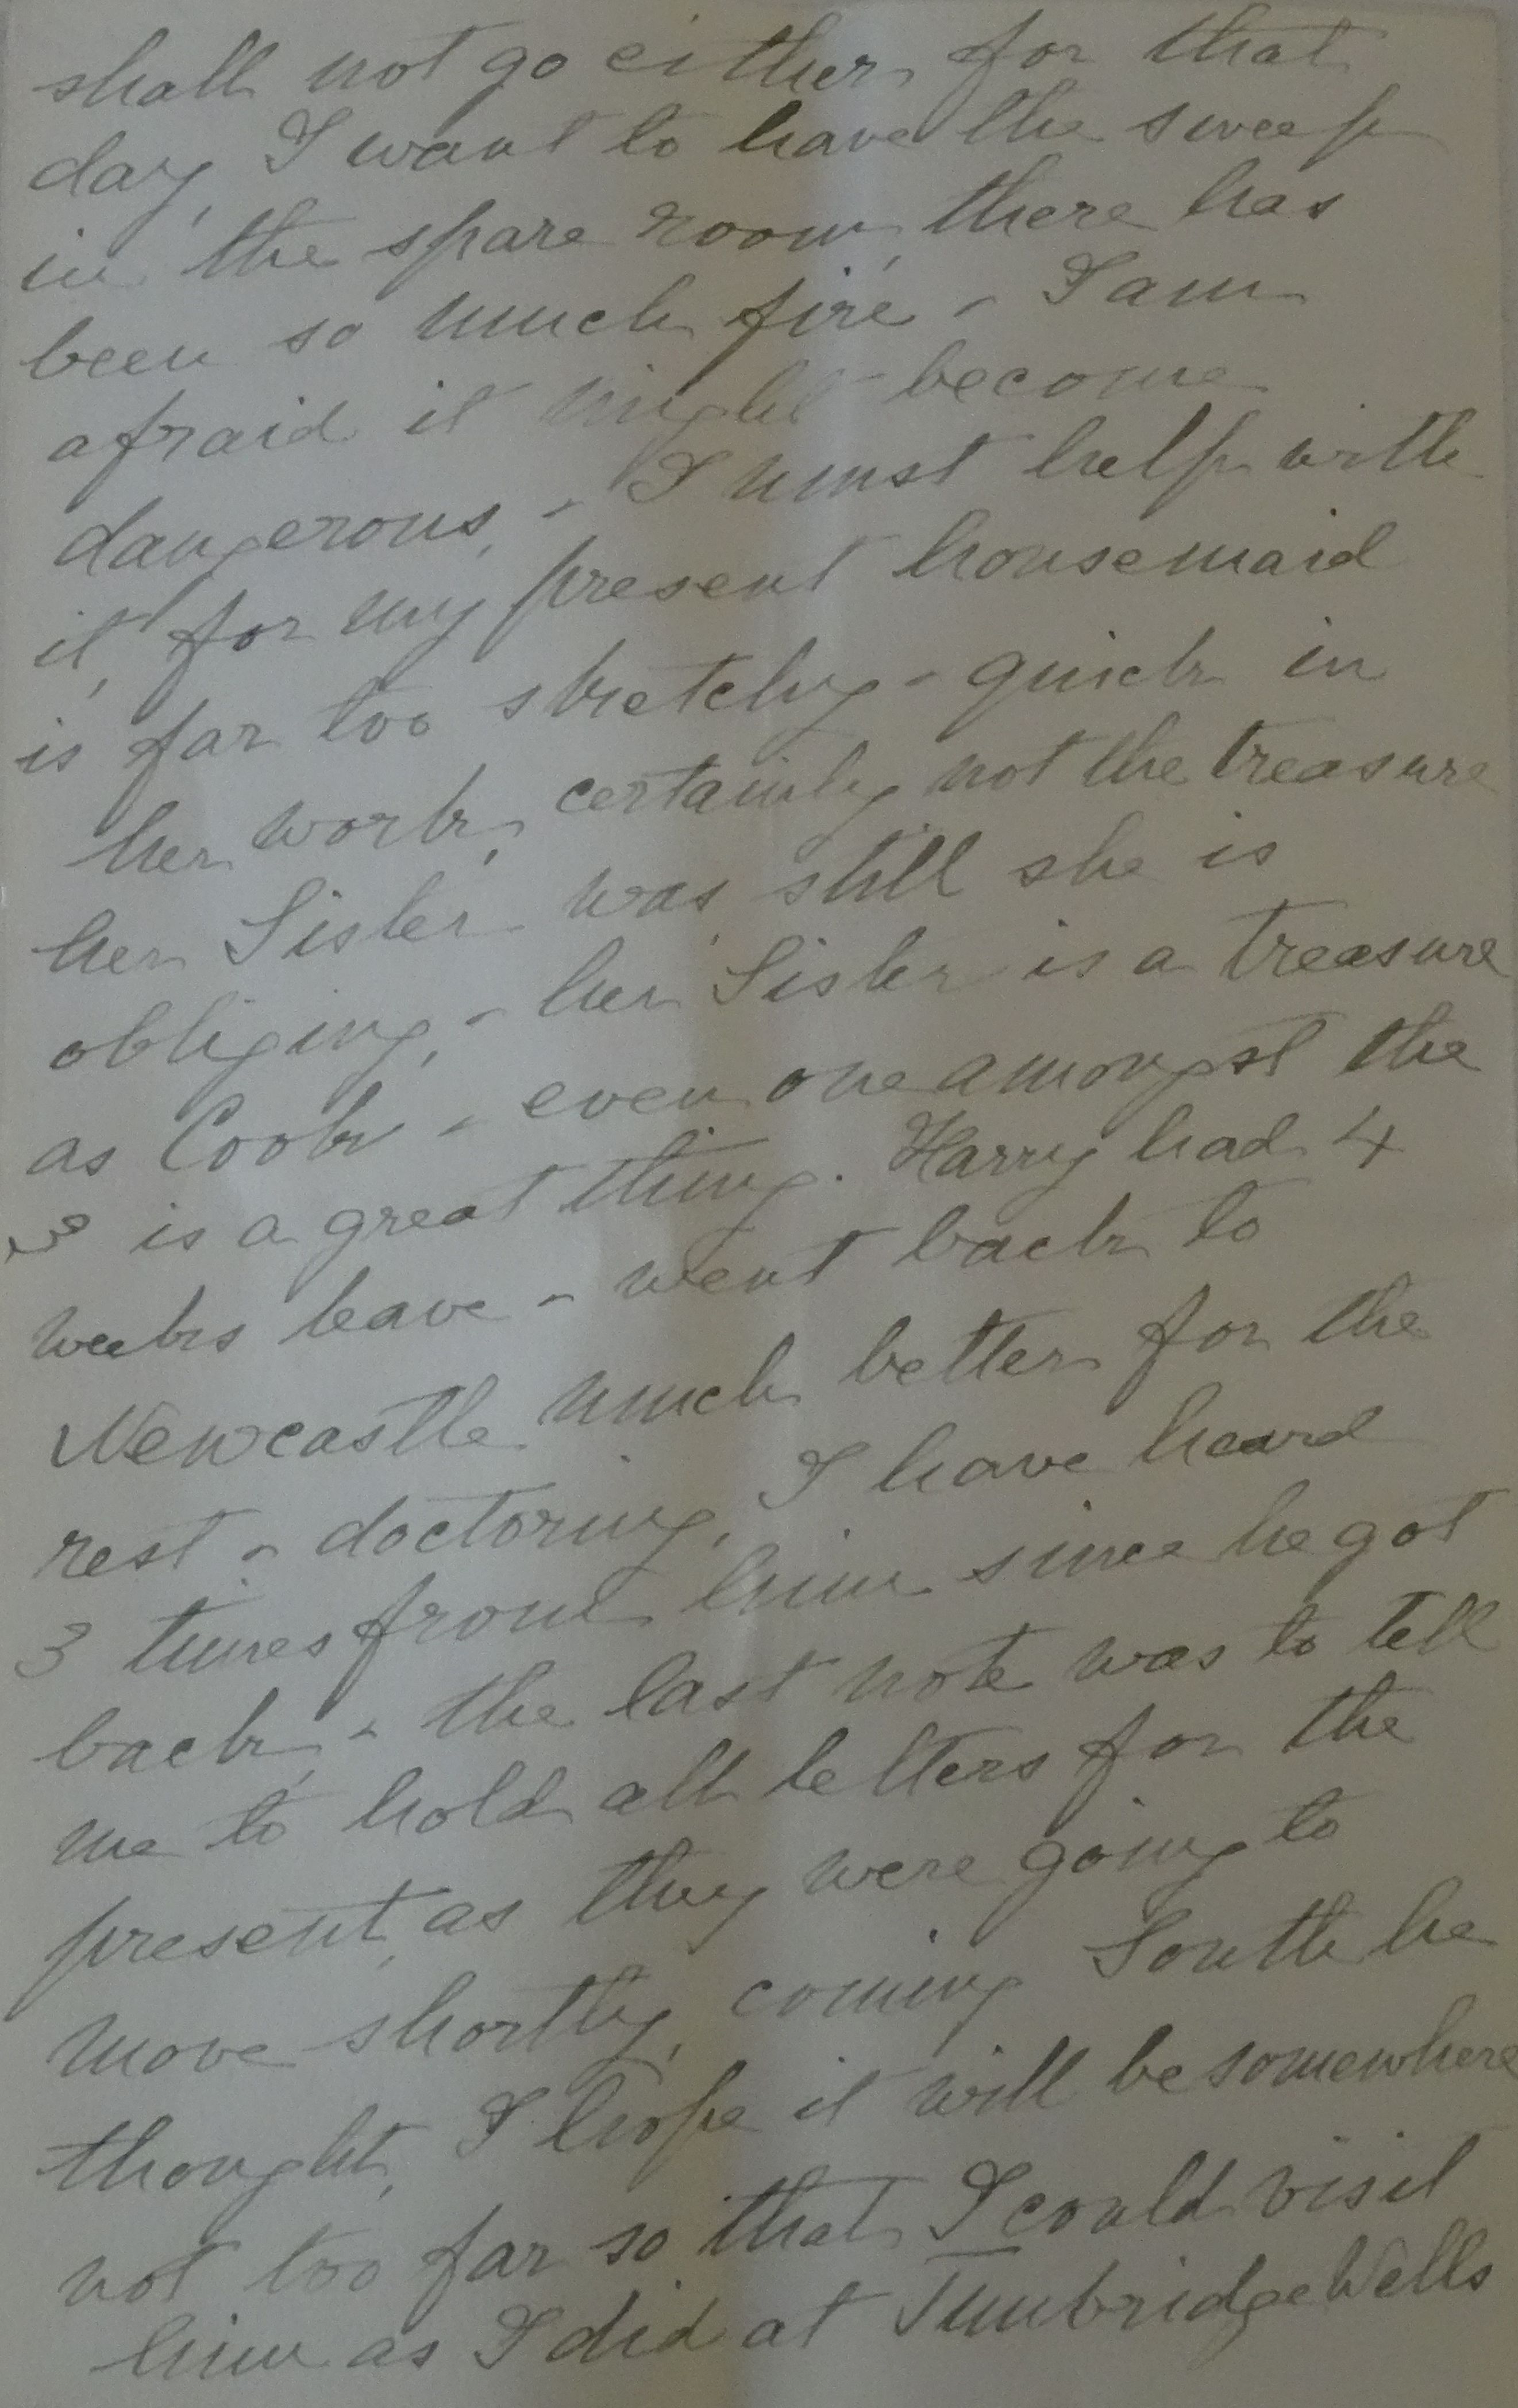 shall not go either, for that
day, I want to have the sweep
in the spare room, there has
been so much fire - I am
afraid it might become
dangerous, - I must help with
it, for my present housemaid
is far too sketchy - quick in
her work, certainly not the treasure
her Sister was, still she is
obliging, - her Sister is a treasure
as Cook - even one amongst the
3 is a great thing. Harry had 4
weeks leave - went back to
Newcastle much better for the
rest - doctoring, I have heard
3 times from him since he got
back, - the last note was to tell
me to hold all letters for the
present, as they were going to
move shortly, coming South he
thought, I hope it will be somewhere
not too far so that I could visit
him as I did at Tunbridge Wells